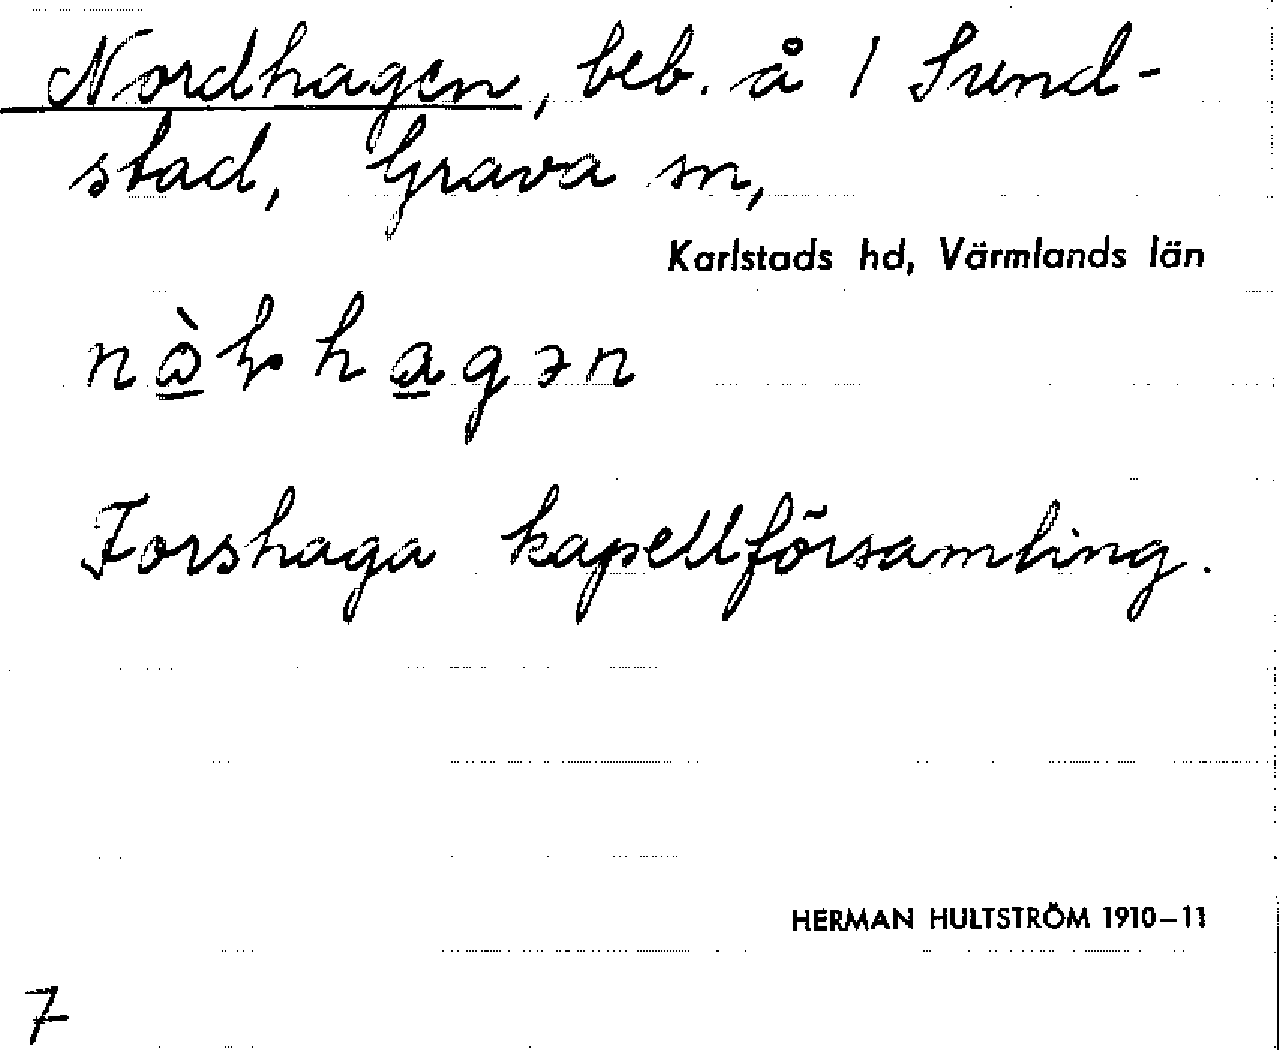 Nordhagen, beb. å 1 Sund-
stad, Grava sn,
Karlstads hd, Värmlands län
hagən
Forshaga kapellförsamling.
HERMAN HULTSTRÖM 1910-11
7